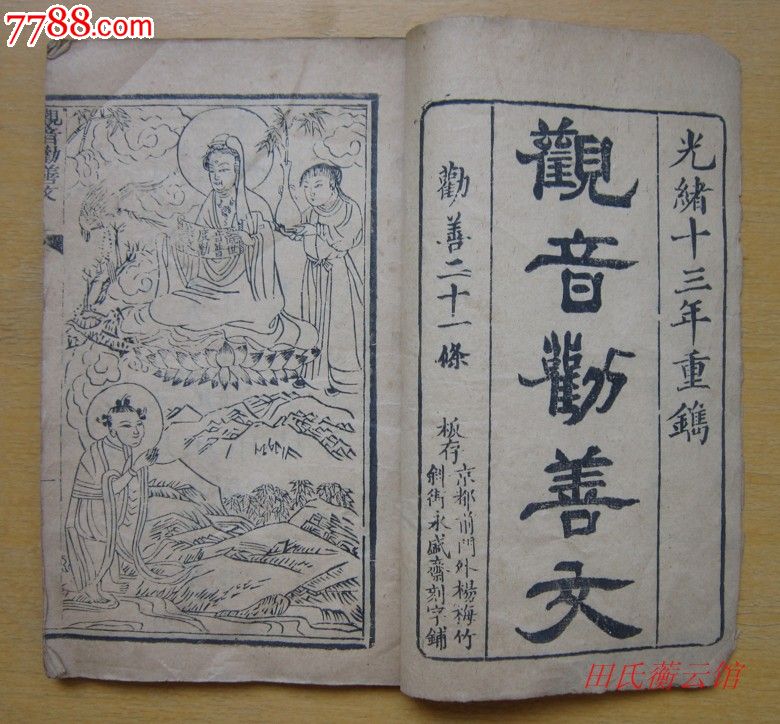 7788.com
光緒十三年重鐫
觀音勸善文
勸善二十一條
板存京都前門外楊梅竹
斜街永盛齋刻字鋪
觀音勸善文
田氏蘅云馆